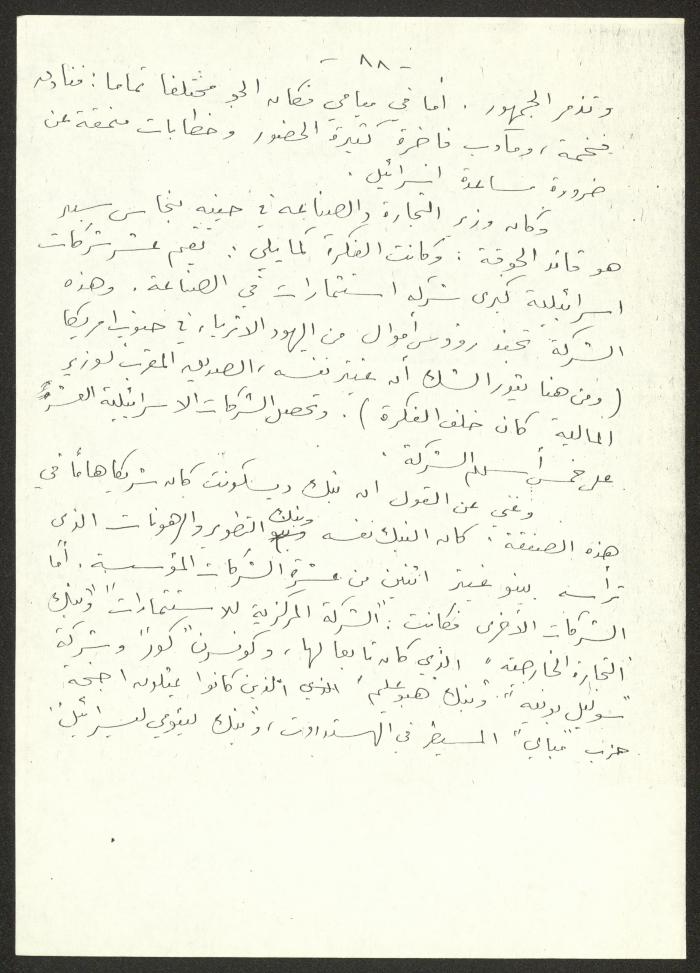 - ٨٨ -
وتذمر الجمهور . أما في ميامي فكان الجو مختلفا تماما : فنادق
فخمة ، ومآدب فاخرة كثيرة الحضور وخطابات منمقة عن
ضرورة مساعدة اسرائيل .
وكان وزير التجارة والصناعه في حينه بنحاس سبير
هو قائد الجوقة : وكانت الفكرة كما يلي : تقيم عشر شركات
اسرائيلية كبرى شركه استثمارات في الصناعة . وهذه
الشركة تجند رؤوس أموال من اليهود الاثرياء في جنوب امريكا
( ومن هنا يثور الشك أن عينر نفسه ، الصديق المقرب لوزير
المالية كان خلف الفكرة ) . وتحصل الشركات الاسرائيلية العشرة
على خمس أسهم الشركة .
وغني عن القول ان بنك ديسكونت كان شريكا هامًا في
هذه الصفقة : كان البنك نفسه وبنك التطوير والرهونات الذى
ترأسه بينو عينر اثنين من عشرة الشركات المؤسسة . أما
الشركات الأخرى فكانت : "الشركة المركزية للاستثمارات" و"بنك
التجارة الخارجية" الذي كان تابعا لها ، وكونسرن "كور" وشركة
"سوليل بونيه" و"بنك هبوعليم" الذي الذين كانوا يمثلون اجنحة
حزب "مباي" المسيطر في الهستدروت ، و"بنك ليئومي ليسرائيل"